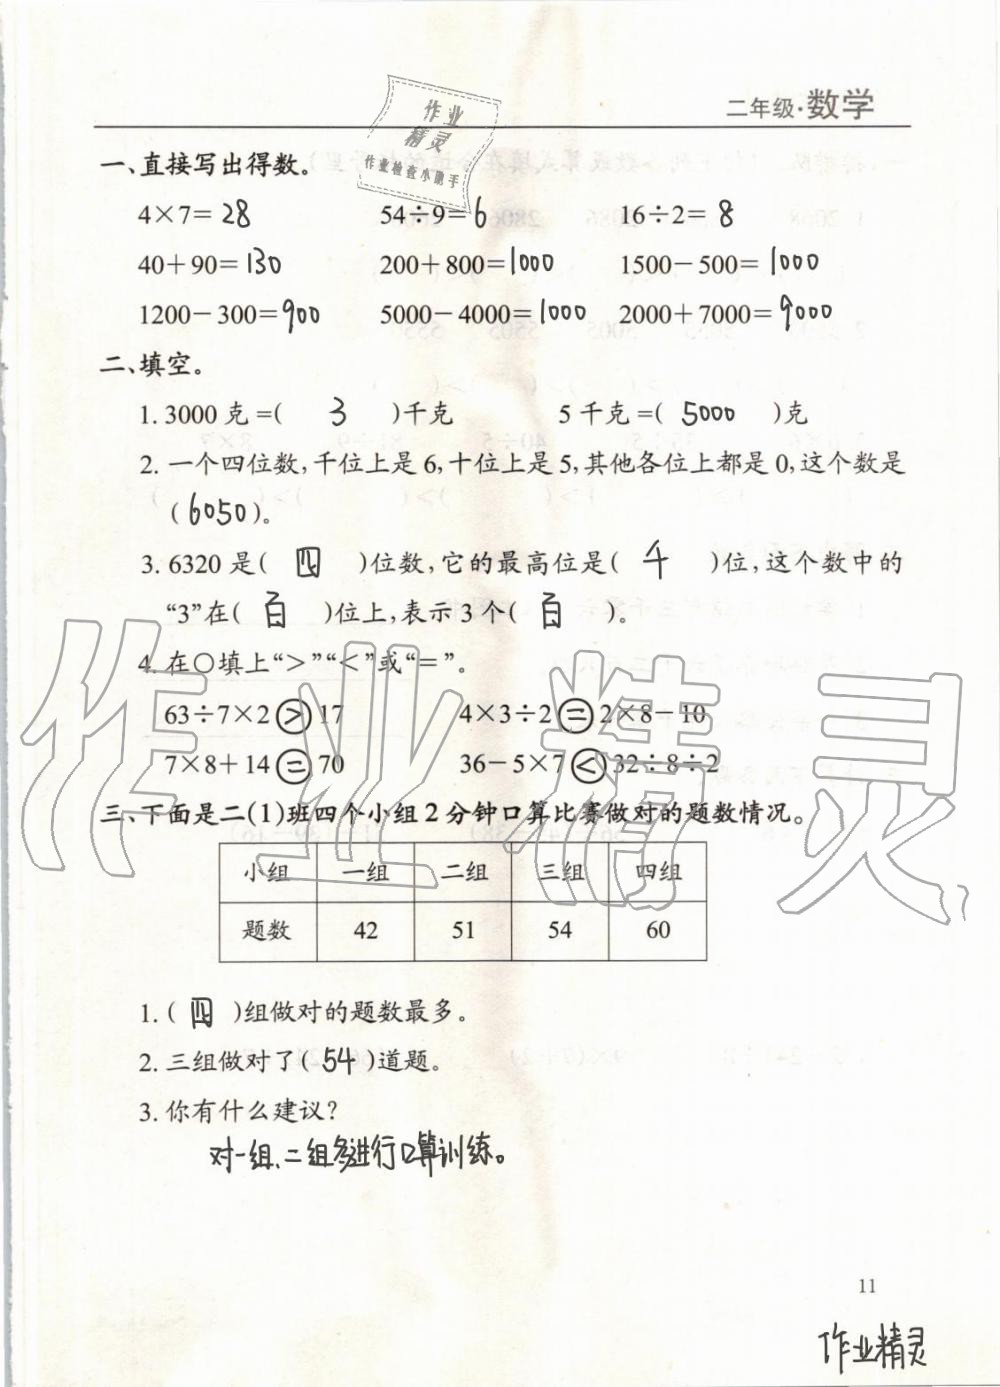 作业
精灵
作业检查小助手
二年级·数学
一、直接写出得数。
4×7=28 54÷9=6 16÷2=8
40+90=130 200+800=1000 1500-500=1000
1200-300=900 5000-4000=1000 2000+7000=9000
二、填空。
1. 3000克=( 3 )千克 5千克=( 5000 )克
2. 一个四位数,千位上是6,十位上是5,其他各位上都是0,这个数是
(6050)。
3. 6320是( 四 )位数,它的最高位是( 千 )位,这个数中的
“3”在( 百 )位上,表示3个( 百 )。
4. 在○填上“>”“<”或“=”。
63÷7×2>17 4×3÷2=2×8-10
7×8+14=70 36-5×7<32÷8÷2
三、下面是二(1)班四个小组2分钟口算比赛做对的题数情况。
小组 一组 二组 三组 四组
题数 42 51 54 60
1. ( 四 )组做对的题数最多。
2. 三组做对了( 54 )道题。
3. 你有什么建议?
对一组、二组多进行口算训练。
11
作业精灵
作业精灵